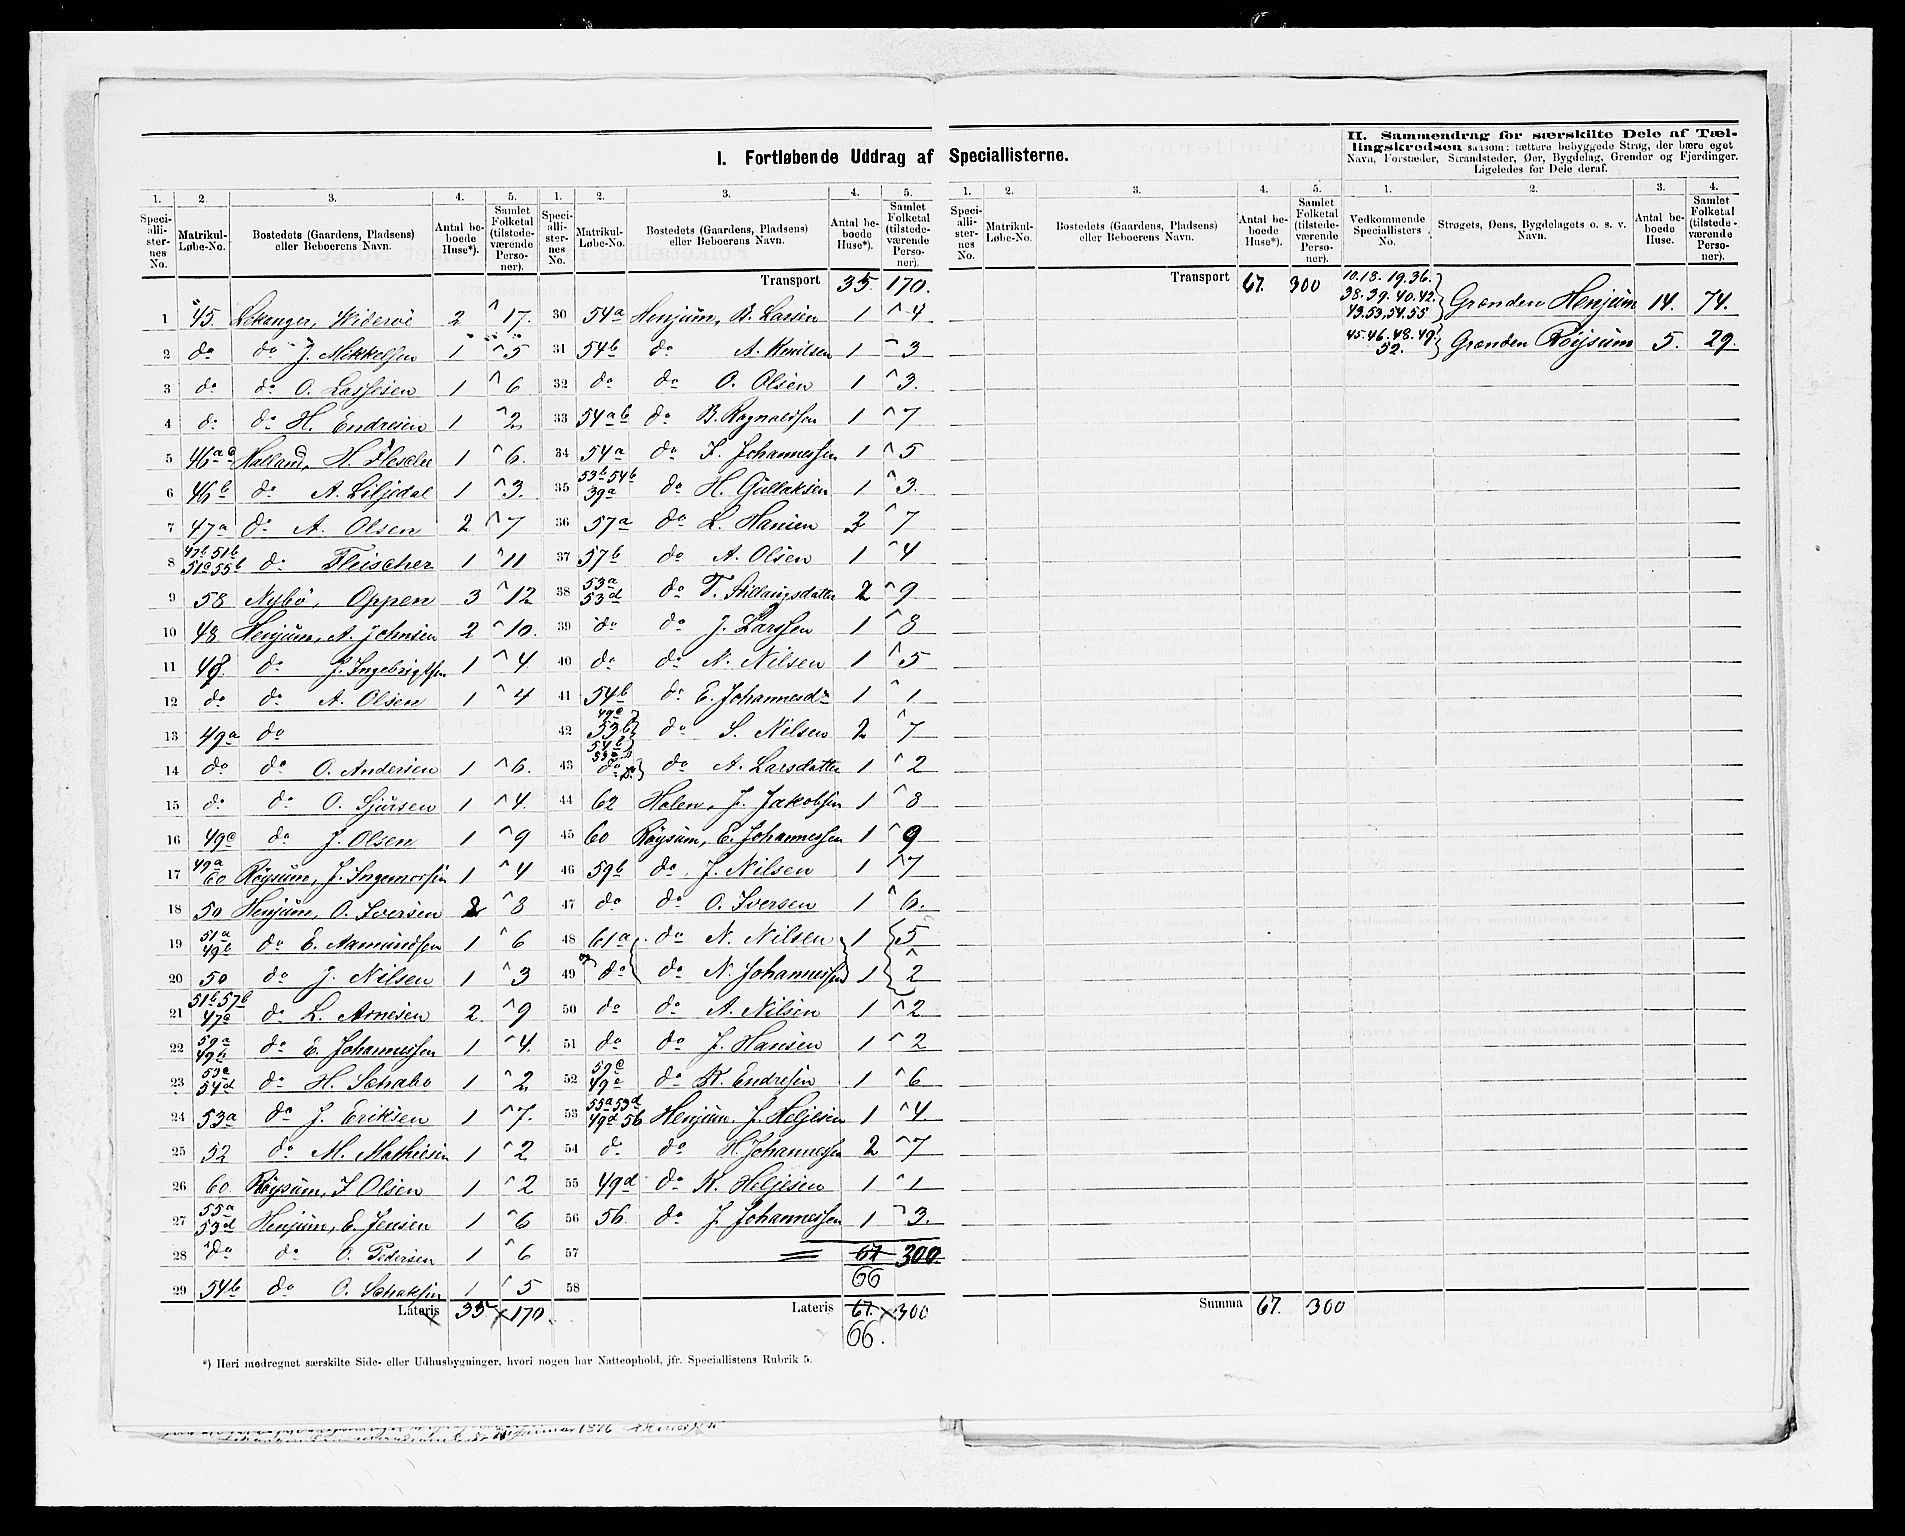 I. Fortløbende Uddrag af Speciallisterne.
II. Sammendrag for særskilte Dele af Tæl-
lingskredsen saasom: tættere bebyggede Strøg, der bære eget
Navn, Forstæder, Strandsteder, Øer, Bygdelag, Grender og Fjerdinger.
Ligeledes for Dele deraf.
1. 2. 3. 4. 5. 1. 2. 3. 4. 5. 1. 2. 3. 4. 5. 1. 2. 3. 4.
Speci-alli-ster-nes No. Matrikul-Løbe-No. Bostedets (Gaardens, Pladsens) eller Beboerens Navn. Antal be-boede Huse*). Samlet Folketal (tilstede-værende Perso-ner).
Speci-alli-ster-nes No. Matrikul-Løbe-No. Bostedets (Gaardens, Pladsens) eller Beboerens Navn. Antal be-boede Huse*). Samlet Folketal (tilstede-værende Perso-ner).
Speci-alli-ster-nes No. Matrikul-Løbe-No. Bostedets (Gaardens, Pladsens) eller Beboerens Navn. Antal be-boede Huse*). Samlet Folketal (tilstede-værende Perso-ner).
Vedkommende Speciallisters No. Strøgets, Øens, Bygdelagets o. s. v. Navn. Antal be-boede Huse. Samlet Folketal (tilstede-værende Perso-ner).
1 45. Lekanger, Widervé 2 17.
2 do do J. Mikkelsen 1 5
3 do do O. Lassesen 1 6
4 do do H. Endresen 1 2
5 46ab Halland, H. Flesche 1 6.
6 46b do A. Liljedal 1 3.
7 47a do A. Olsen 2 7
8 47b 51b 51c 55b do Fleischer 1 11
9 58 Nybö, Oppen 3 12
10 48 Henjum, A. Johnsen 2 10.
11 48. do J. Ingebrigtsen 1 4.
12 do do A. Olsen 1 4
13 49a do
14 do do O. Andersen 1 6.
15 do do O. Sjursen 1 4.
16 49c do J. Olsen 1 9
17 49a 60 Röysum, J. Ingemorsen 1 4
18 50 Henjum, O. Iversen 2 3
19 51a 49b do E. Aamundsen 1 6
20 50 do J. Nilsen 1 3
21 51b 57b 47a do L. Arnesen 2. 9
22 59a 49b do E. Johannessen 1 4.
23 53c 54d do H. Schabo 1 2
24 53a do J. Eriksen 1 7.
25 52 do M. Mathiesen 1 2
26 60 Röysum, I Olsen 1 2
27 55a 53d Henjum, E. Jensen 1 6
28 do do O. Pedersen 1 6
29 54b do O. Schaksen 1 5
Lateris 35 170.
Transport 35. 170.
30 54a Henjum, B. Lassen 1 4
31 54b do A. Knutsen 1 3
32 do do O. Olsen 1 3.
33 54ab do B. Ragnaldsen 1 7
34 54a do I. Johannessen 1 5
35 53b 54b 39a do H. Gullaksen 1 3.
36 57a do L. Hansen 3 7
37 57b do A. Olsen 1 4
38 53a 53d do T. Hidaugsdatter 2 9
39 do do J. Larssen 1 3
40 do do N. Nilsen 1 5
41 54b do E. Johannesdr 1 1
42 49c 53b 54b do S. Nilsen 2 7
43 do do A. Larsdatter 1. 2
44 62 Holen, J. Jakobsen 1 3
45 60 Röysum, E. Johannessen 1 9
46 59b do J. Nilsen 1 7
47 do do O. Iversen 1 6.
48 61a do N. Nilsen 1 5
49 do do N. Johannessen 1 2
50 do do A. Nilsen 1 2
51 do do J. Hansen 1 2
52 59c 49c do K. Endresen 1 6
53 55a 53d 49d 56 Henjum. J. Heljesen 1 4.
54 do do H. Johannessen 2 7
55 49d do K. Heljesen 1 1
56 56. do J. Johannessen 1 3.
57 67 300.
66
58
Lateris 67. 300
66.
Transport 67. 300
Summa 67. 300
10. 18. 19. 36. 38. 39. 40. 42. 43. 53, 54. 55 Grænden Henjum 14. 74.
45. 46. 48. 49. 52. Grænden Röysum 5. 29.
*) Heri medregnet særskilte Side- eller Udhusbygninger, hvori nogen har Natteophold, jfr. Speciallistens Rubrik 5.